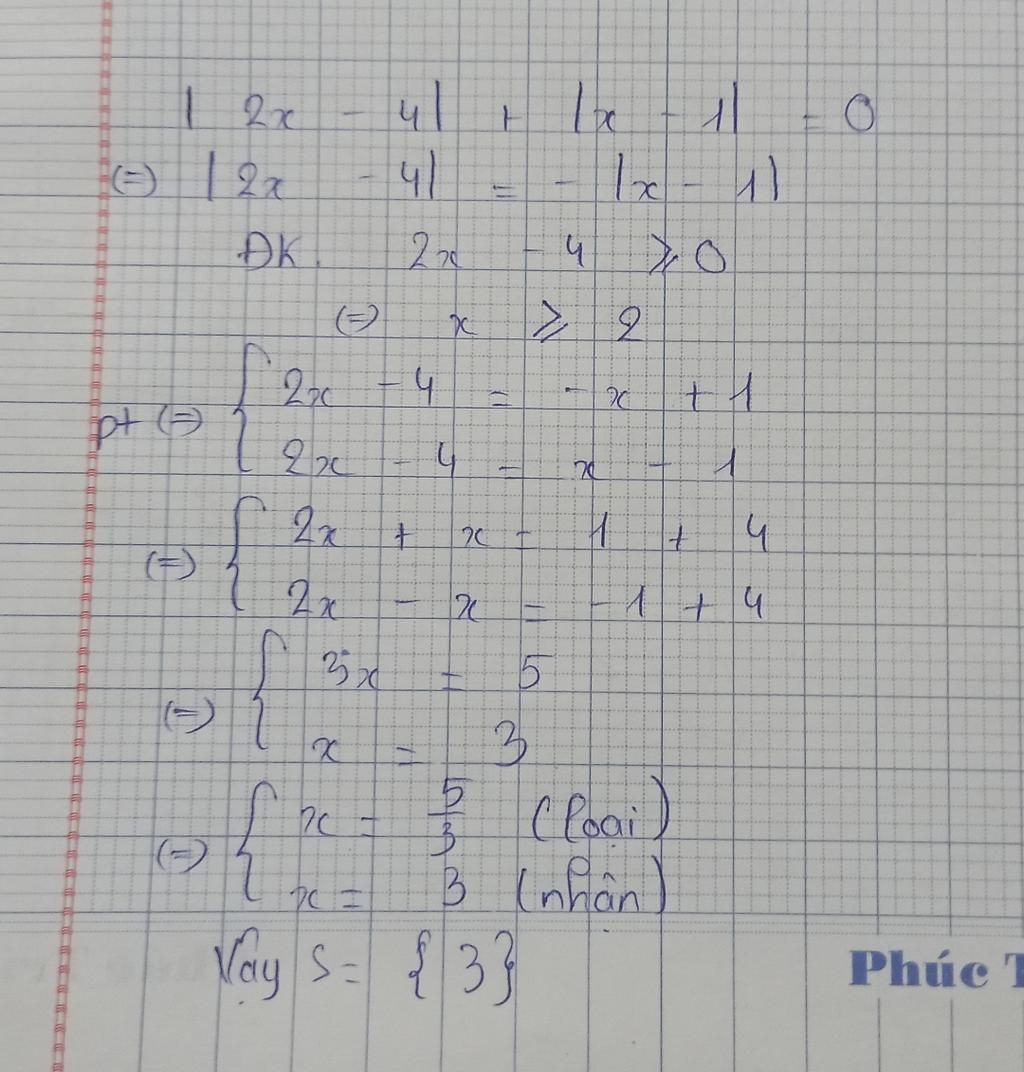 | 2x - 4| + |x - 1| = 0
(=) | 2x - 4| = - |x - 1|
ĐK. 2x - 4 ⩾ 0
(=) x ⩾ 2
pt (=) { 2x - 4 = - x + 1
2x - 4 = x - 1
(=) { 2x + x = 1 + 4
2x - x = - 1 + 4
(=) { 3x = 5
x = 3
(=) { x = 5/3 (loại)
x = 3 (nhận)
Vậy S = { 3 }
Phúc T